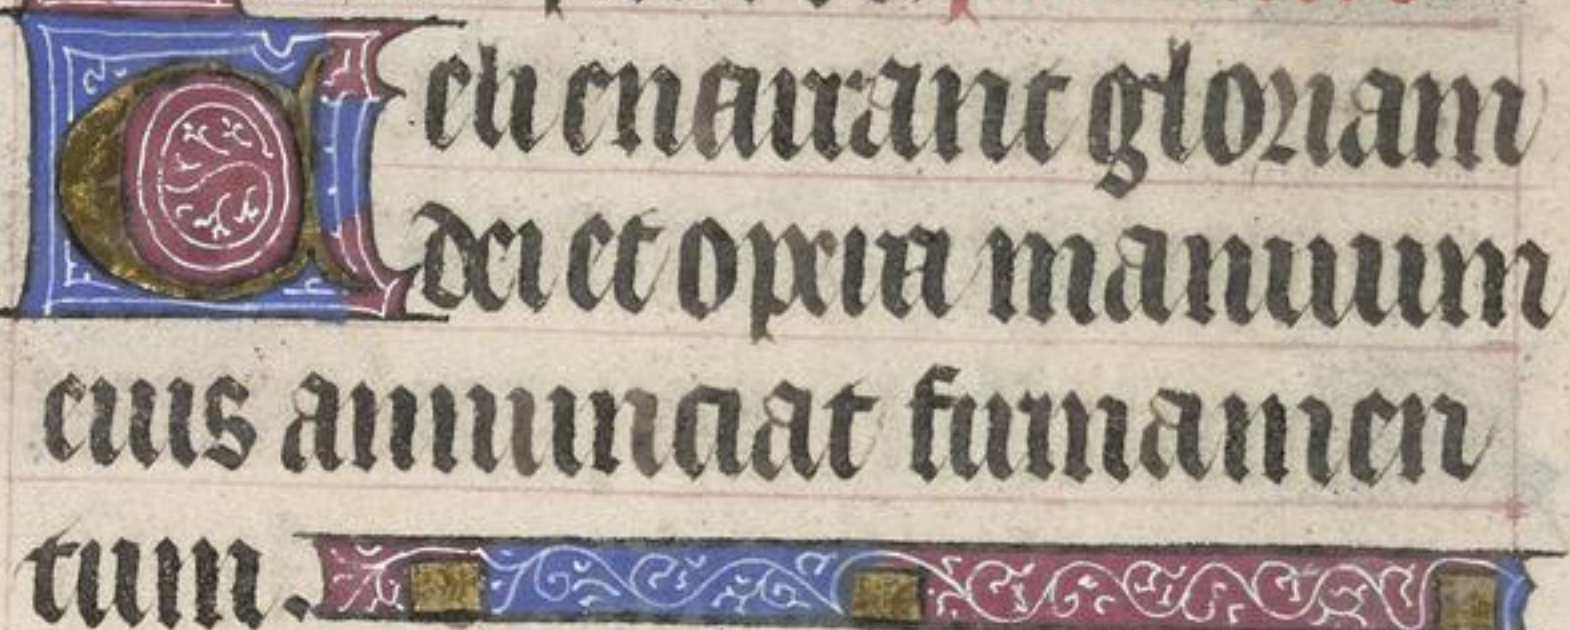 Celi enarrant gloriam
dei et opera manuum
eius annunciat firmamen
tum.